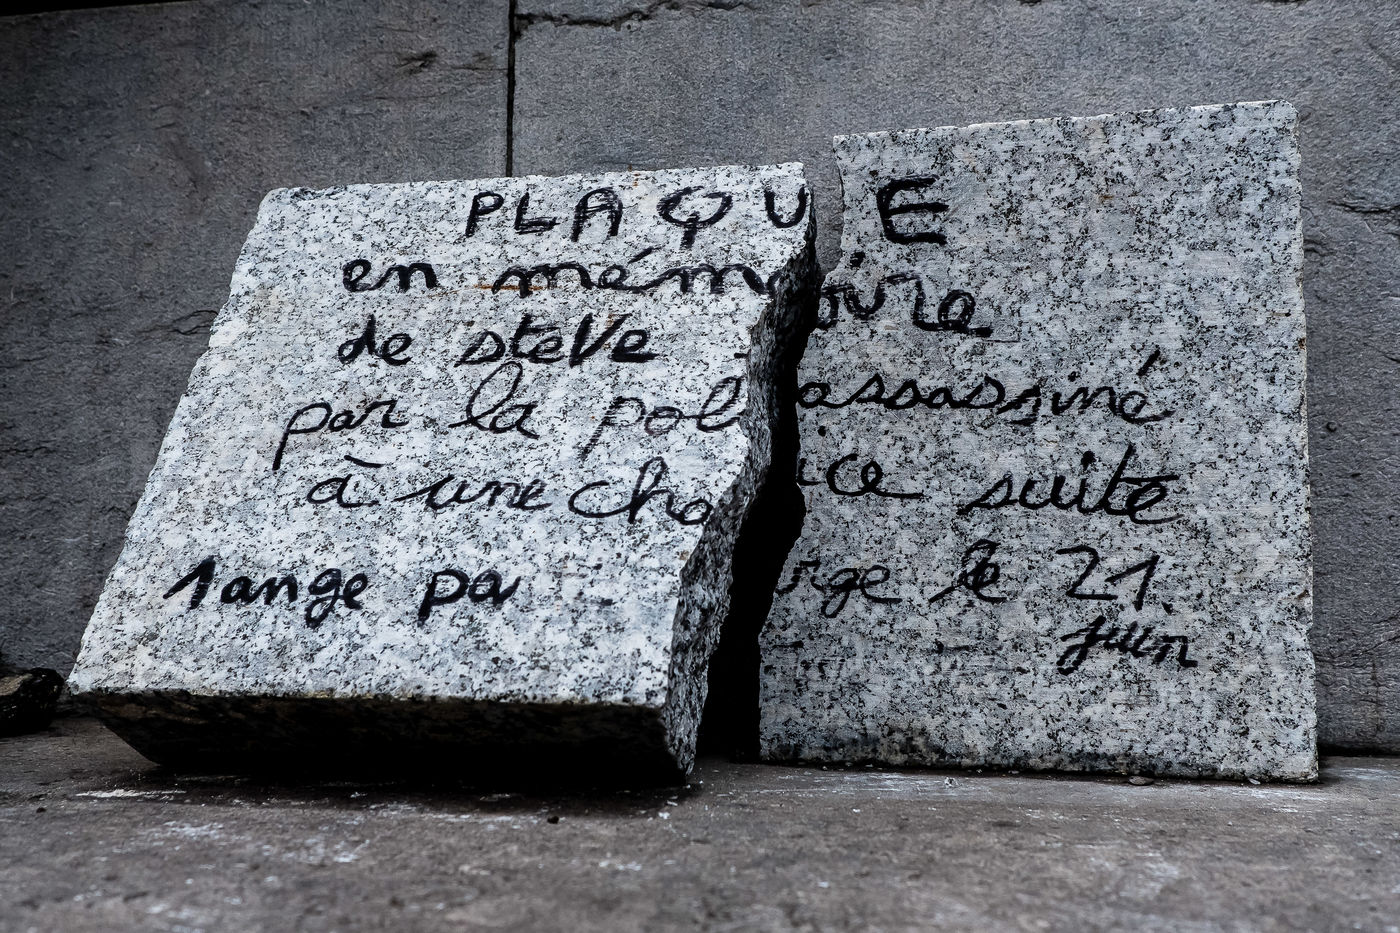 PLAQUE
en mémoire
de steve assassiné
par la police suite
à une charge le 21.
juin
1ange pa